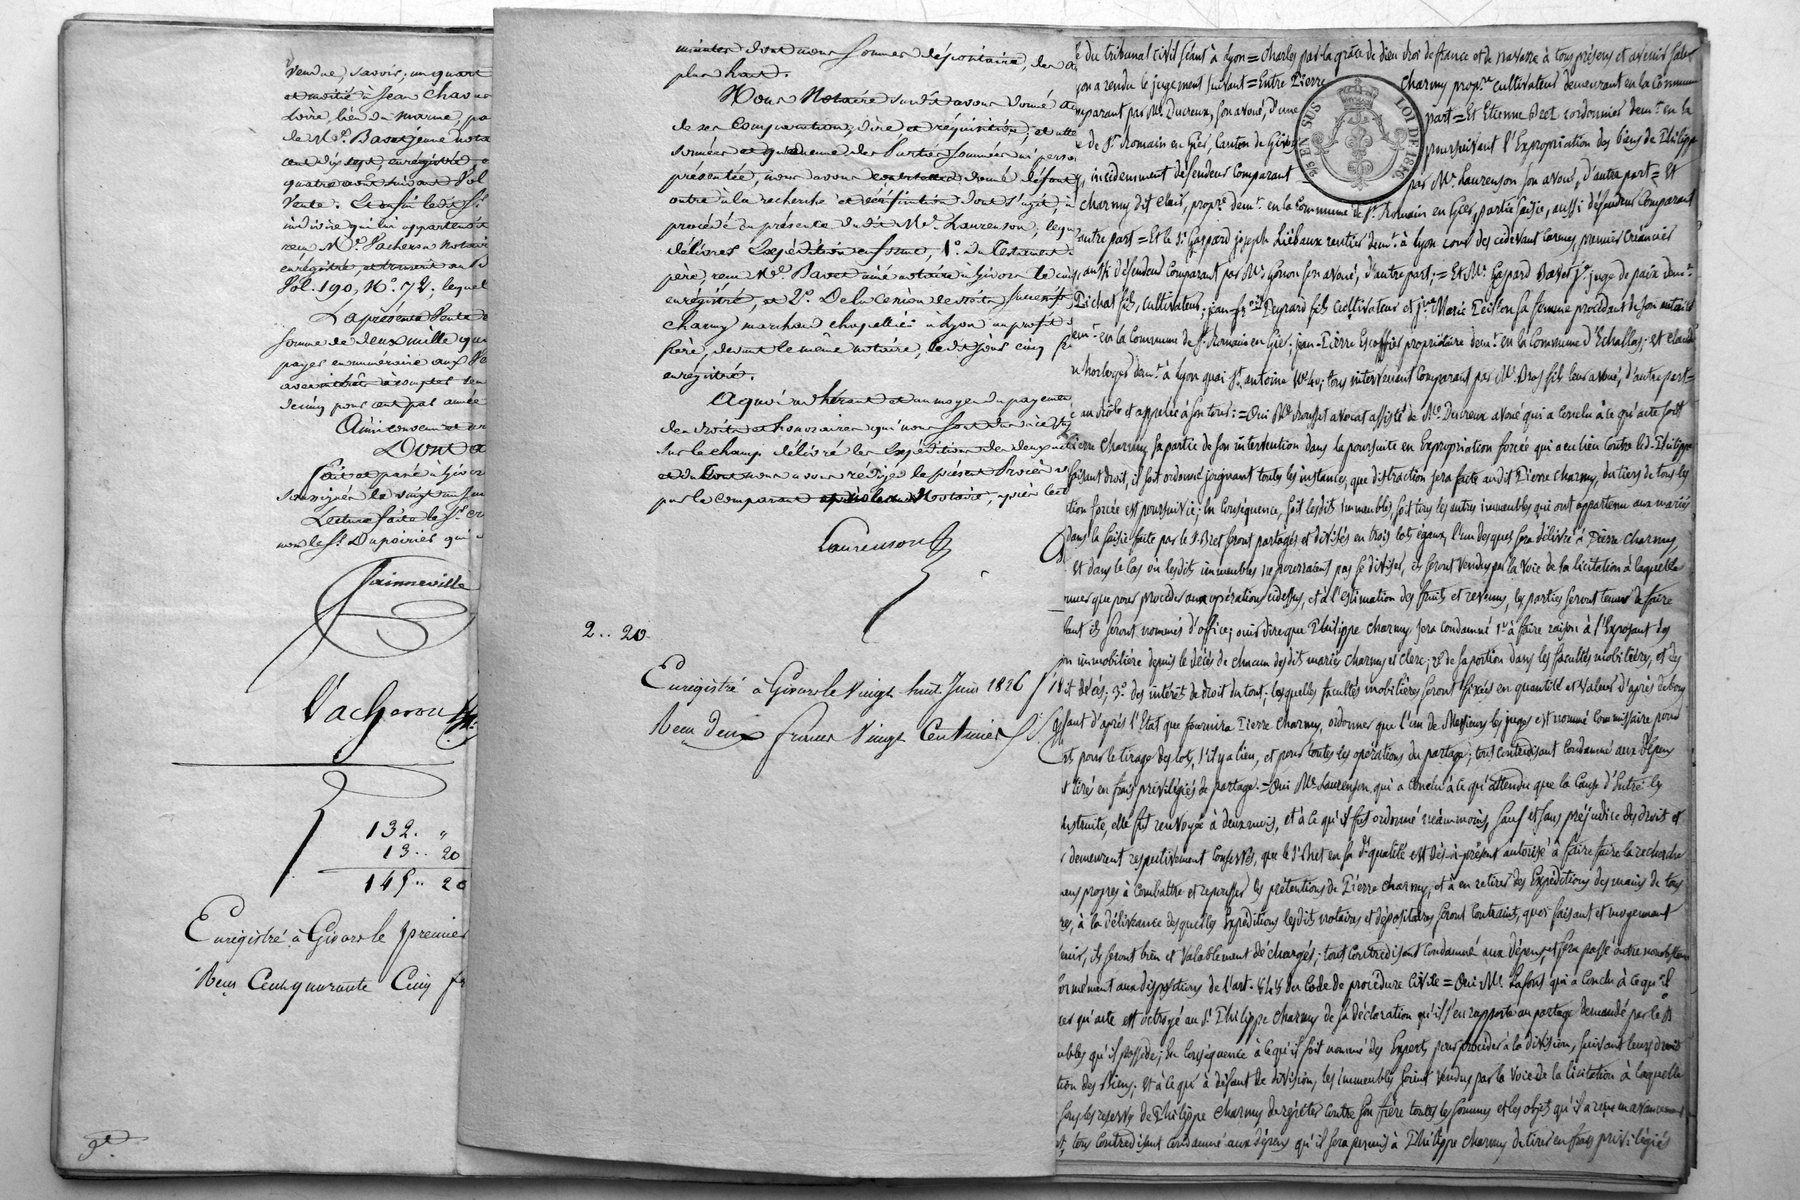 vendue, savoir, un quart
et moitié à Jean Chav
Loire, lieu du marne, pa
de Me. Bavet jeune nota
cent dix sept, enregistré, e
quatre août suivant Vol
Vente.
indivise qui lui appartenait
reçu Me. Vacheron Notaire
enregistré, et transcrit au B
Vol. 190, No. 72; lequel
La présente Vente e
somme de deux mille qu
payer en numéraire aux V
avec intérêt à compter
de cinq pour cent par année
Ainsi convenu et
Dont a
Fait et passé à Givors
soussignés le vingt un
Lecture faite le Sr.
non le Sr. Dupoiriés qui
Jainneville
Vacheron
132. "
13.. 20
145.. 20
Enregistré à Givors le premier
Reçu Cent quarante Cinq fr
minutes dont nous sommes dépositaire, des a
plus haut.
Nous Notaire susdit avons donné a
de ses comparution, dire et réquisition, et atte
sommées et qu'aucune des Parties sommées ni perso
présentée, nous avons donné défaut
outre à la recherche et dont s'agit, à
procédé en présence du dit Me. Laurenson, lequ
délivrer Expédition en forme, 1o. du Testament
père, reçu Me. Bavet aîné notaire à Givors le cinq
enregistré, et 2o. De la cession de droits successifs
Charmy marchand chapellier à Lyon au profit
frère, devant le même notaire, le dit jour cinq
enregistré.
A quoi adhérant et au moyen du payement
des droits et honoraires qui nous sont dus
sur le champ délivré les Expéditions des deux
et du tout nous avons rédigé le présent Procès v
par le comparant et Notaire, après lect
Laurenson
2.. 20
Enregistré à Givors le Vingt huit Juin 1826
Reçu deux francs Vingt Centimes
95 EN SUS LOI DE 1816
e du tribunal civil séant à Lyon = Charles par la grâce de dieu roi de france et de navarre à tous présens et avenir salut
yon a rendu le jugement suivant = Entre Pierre Charmy propre. cultivateur demeurant en la Commune
mparant par Me. Ducreux, son avoué, d'une part = Et Etienne Bret cordonnier demt. en la
e de St. Romain en Gier, Canton de Givors poursuivant l'Expropriation des biens de Philippe
y, incidemment défendeur Comparant par Me. Laurenson son avoué, d'autre part = Et
Charmy dit clair, propre. demt. en la Commune de St. Romain en Gier, partie saisie, aussi défendeur Comparant
d'autre part = Et le Sr. Gaspard joseph Liébaux rentier demt. à Lyon cour des cidevant Carmes, premier créancier
, aussi défendeur Comparant par Me. Gonon son avoué, d'autre part; = Et Mr. Gaspard Bavet je. juge de paix demt.
Pichat fils, cultivateur; jean-fr. Peyrard fils cultivateur et jne. Marie Peillon sa femme procédant de son autorité
demt. en la Commune de St. Romain en Gier; jean-Pierre Escoffier propriétaire demt. en la commune d'Echallas; et claude
n horloger demt. à Lyon quai St. antoine No. 40; tous intervenant Comparant par Me. Bros fils leur avoué, d'autre part =
e au rôle et appelée à son tour: = Oui Me. Rousset avocat assisté de Me. Ducreux avoué qui a conclu à ce qu'acte soit
Pierre Charmy sa partie de son intervention dans la poursuite en Expropriation forcée qui a eu lieu contre led. Philippe
faisant droit, il soit ordonné joignant toutes les instances, que distraction sera faite audit Pierre Charmy, du tiers de tous les
tion forcée est poursuivie; En Conséquence, soit lesdits immeubles, soit tous les autres immeubles qui ont appartenu aux mariés
dans la saisie faite par le Sr. Bret seront partagés et divisés en trois lots égaux, l'un desquels sera délivré à Pierre Charmy
et dans le cas où lesdits immeubles ne pourraient pas se diviser, ils seront vendus par la voie de la licitation à laquelle
nner que pour procéder aux opérations cidessus, et à l'estimation des fruits et revenus, les parties seront tenues de faire
tant ils seront nommés d'office; ouir dire que Philippe Charmy sera condamné 1o. à faire raison à l'Exposant des
on immobilière depuis le décès de chacun desdits mariés Charmy et Clerc; 2o. de sa portion dans les facultés mobilières, et des
dit décès; 3o. des intérêts de droit du tout; lesquelles facultés mobilières seront fixées en quantité et valeur d'après de bons
issant d'après l'Etat que fournira Pierre Charmy, ordonner que l'un de Messieurs les juges est nommé Commissaire pour
et pour le tirage des lots, s'il y a lieu, et pour toutes les opérations du partage; tout contendisant condamné aux dépens
t tirés en frais privilégiés de partage. = Oui Me. Laurenson, qui a conclu à ce qu'attendu que la Cause d'Entre les
instruite, elle fut renvoyée à deux mois, et à ce qu'il fut ordonné néanmoins, sauf et sans préjudice des droits et
demeurent respectivement Conservés, que le Sr. Bret en sa de. qualité est dès-à-présent autorisé à faire faire la recherche
mens propres à Combattre et repousser les prétentions de Pierre Charmy, et à en retirer des Expéditions des mains de tous
res, à la délivrance desquelles Expéditions lesdits notaires et dépositaires seront Contraints, quoi faisant et moyennant
enir, ils seront bien et Valablement déchargés; tout Contredisant condamné aux dépens, et sera passé outre nonobstant
ormément aux dispositions de l'art. 848 du Code de procédure Civile = Oui Me. Lafont qui a Conclu à ce qu'il
er qu'acte est octroyé au Sr. Philippe Charmy de sa déclaration qu'il s'en rapporte au partage demandé par le Sr
ubles qu'il possède; En Conséquence à ce qu'il soit nommé des Experts pour procéder à la division, suivant leurs droits
tion des Biens; et à ce qu'à défaut de division, les immeubles soient Vendus par la Voie de la licitation à laquelle
sous les reserves de Philippe Charmy de répéter contre son frère toutes les sommes et les objets qu'il a reçus en avancement
t, tous Contredisant condamné aux dépens qu'il sera permis à Philippe Charmy de tirer en frais privilégiés